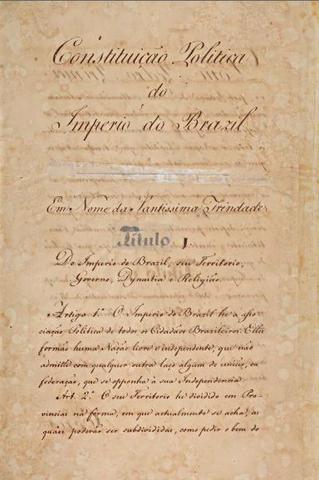 Constituição Politica
do
Imperio do Brazil
Em Nome da Santissima Trindade
Titulo 1.
Do Imperio do Brazil, seu Territorio,
Governo, Dynastia e Religião.
Artigo 1.º O Imperio do Brazil he a asso-
ciação Politica de todos os Cidadãos Brazileiros. Elles
formão huma Nação livre e independente, que não
admitte com qualquer outra laço algum de união, ou
federação, que se opponha á sua Independencia.
Art. 2.º O seu Territorio he dividido em Pro-
vincias na fórma, em que actualmente se acha, as
quaes poderão ser subdivididas, como pedir o bem do